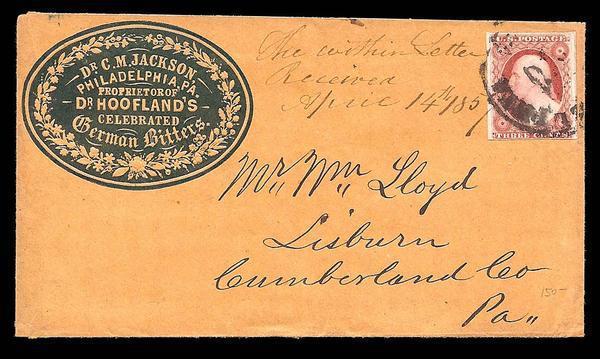 DR. C. M. JACKSON,
PHILADELPHIA, PA.
PROPRIETOR OF
DR. HOOFLAND'S
CELEBRATED
German Bitters.
The within Letter
Received
April 14th 1857
U.S. POSTAGE
THREE CENTS
Mr. Wm Lloyd
Lisburn
Cumberland Co
Pa,,
150-